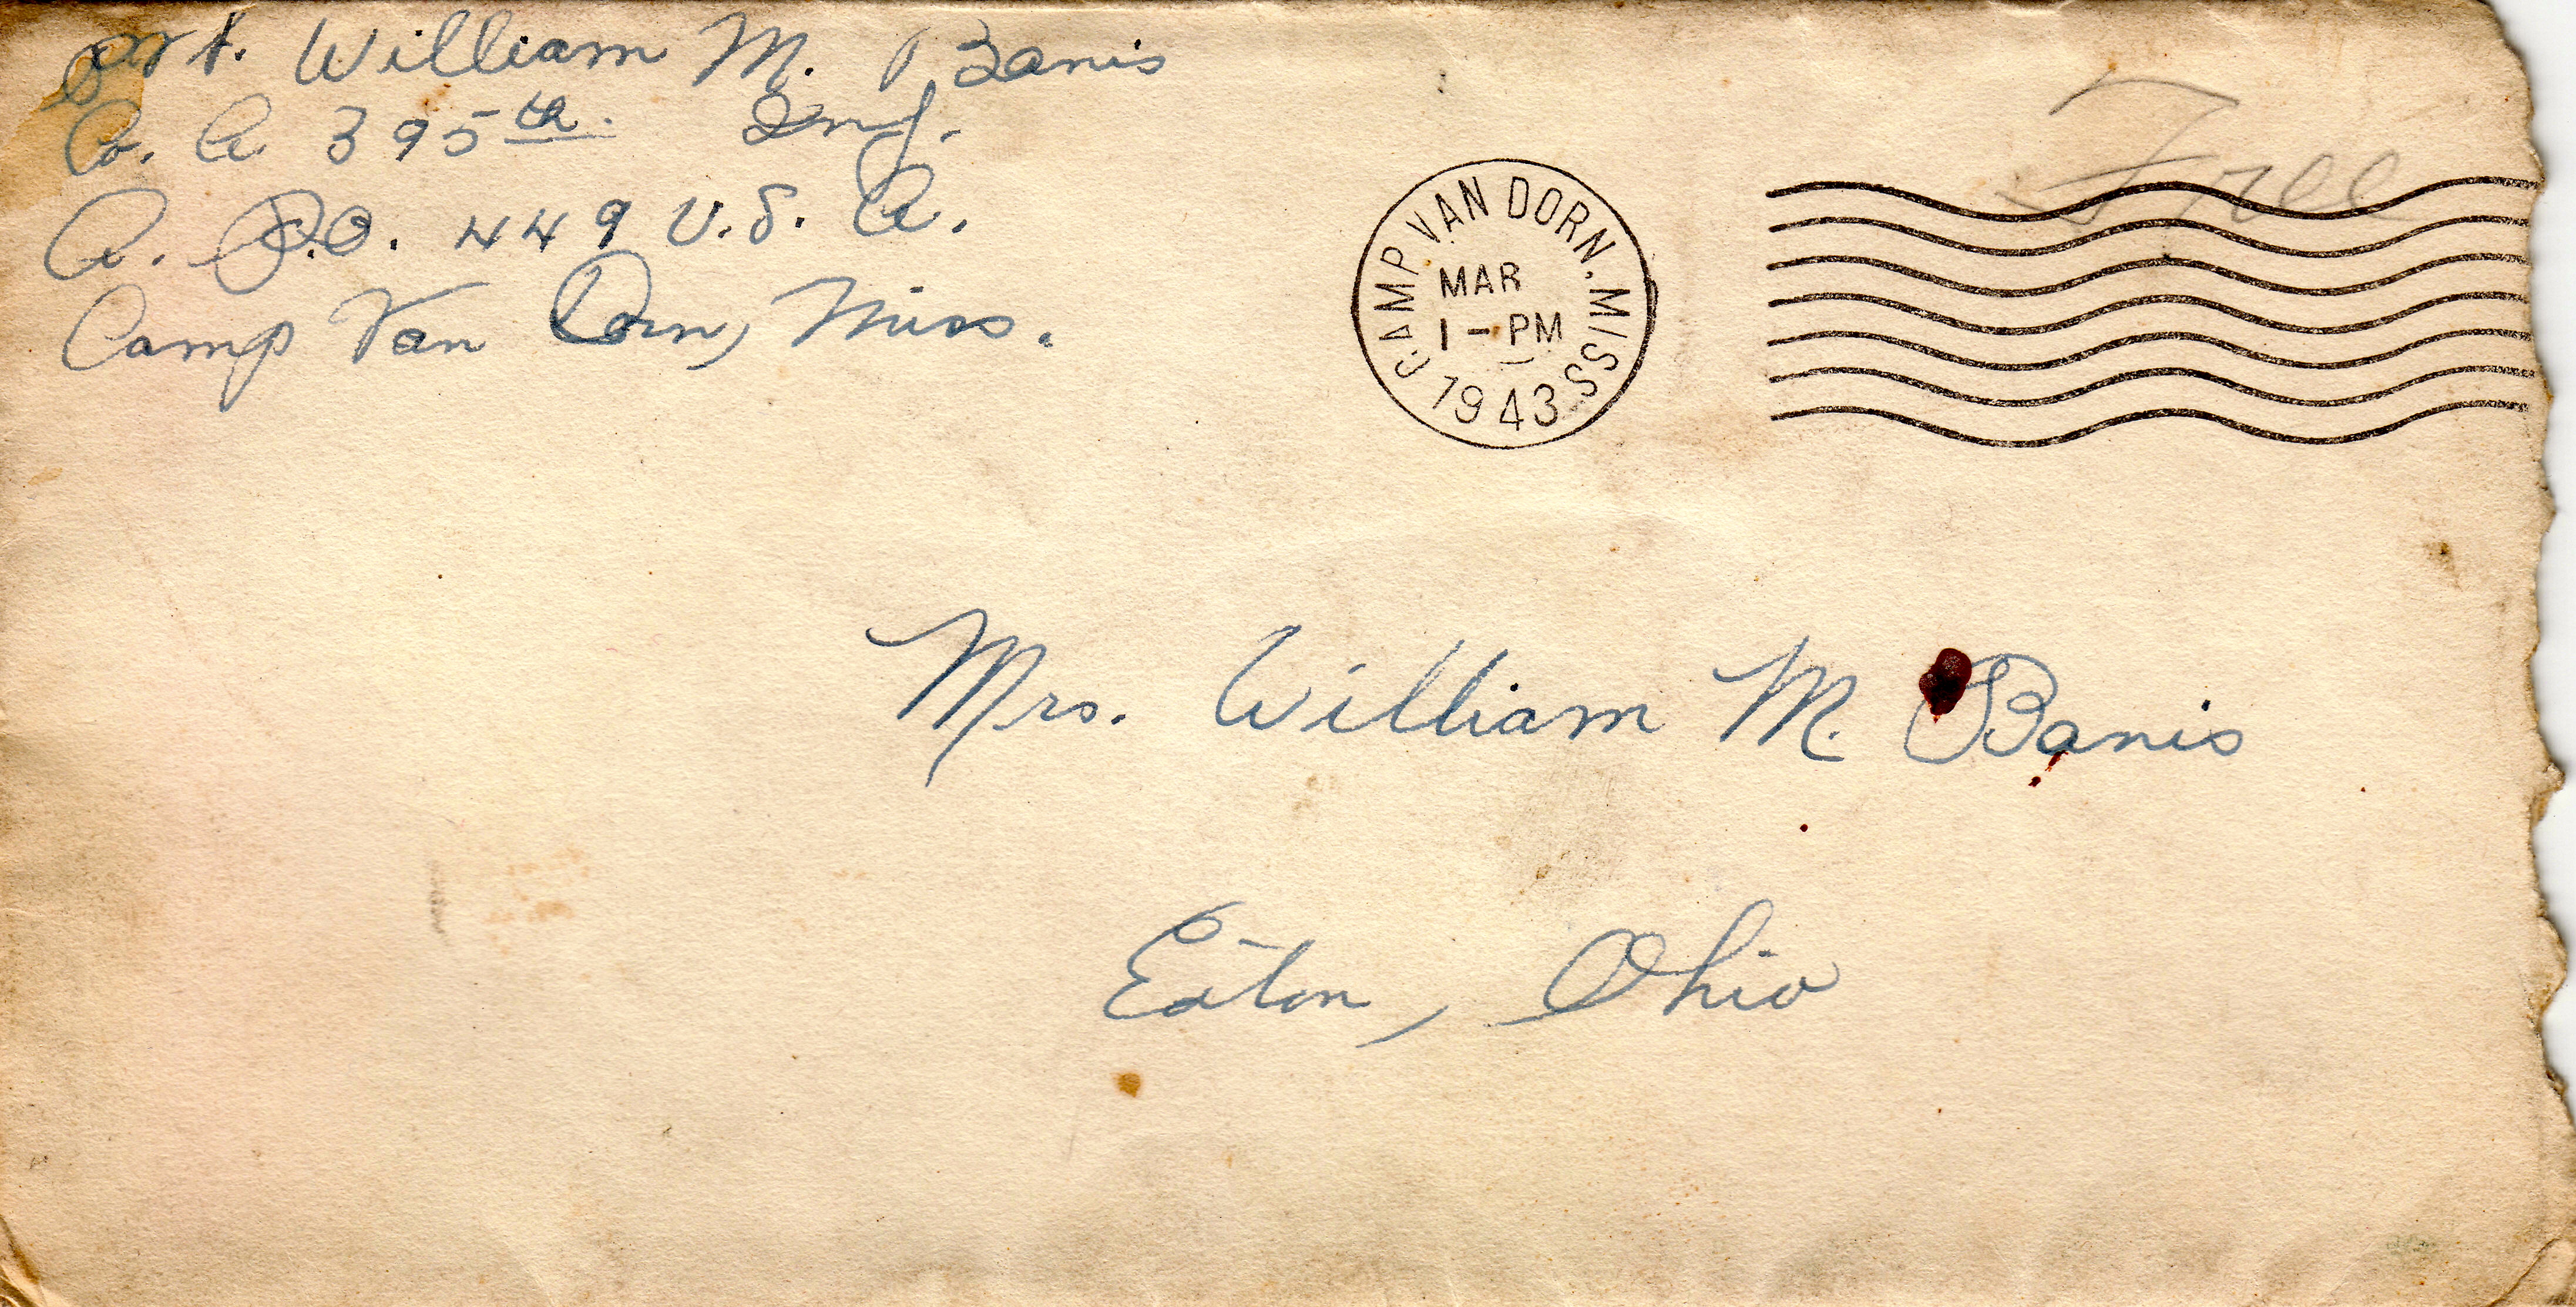 Pvt. William M. Banis
Co. A 395th. Inf.
A. P.O. 449 U.S. A.
Camp Van Dorn, Miss.
Free
CAMP VAN DORN. MISS
MAR
1 - PM
1943
Mrs. William M. Banis
Eaton, Ohio